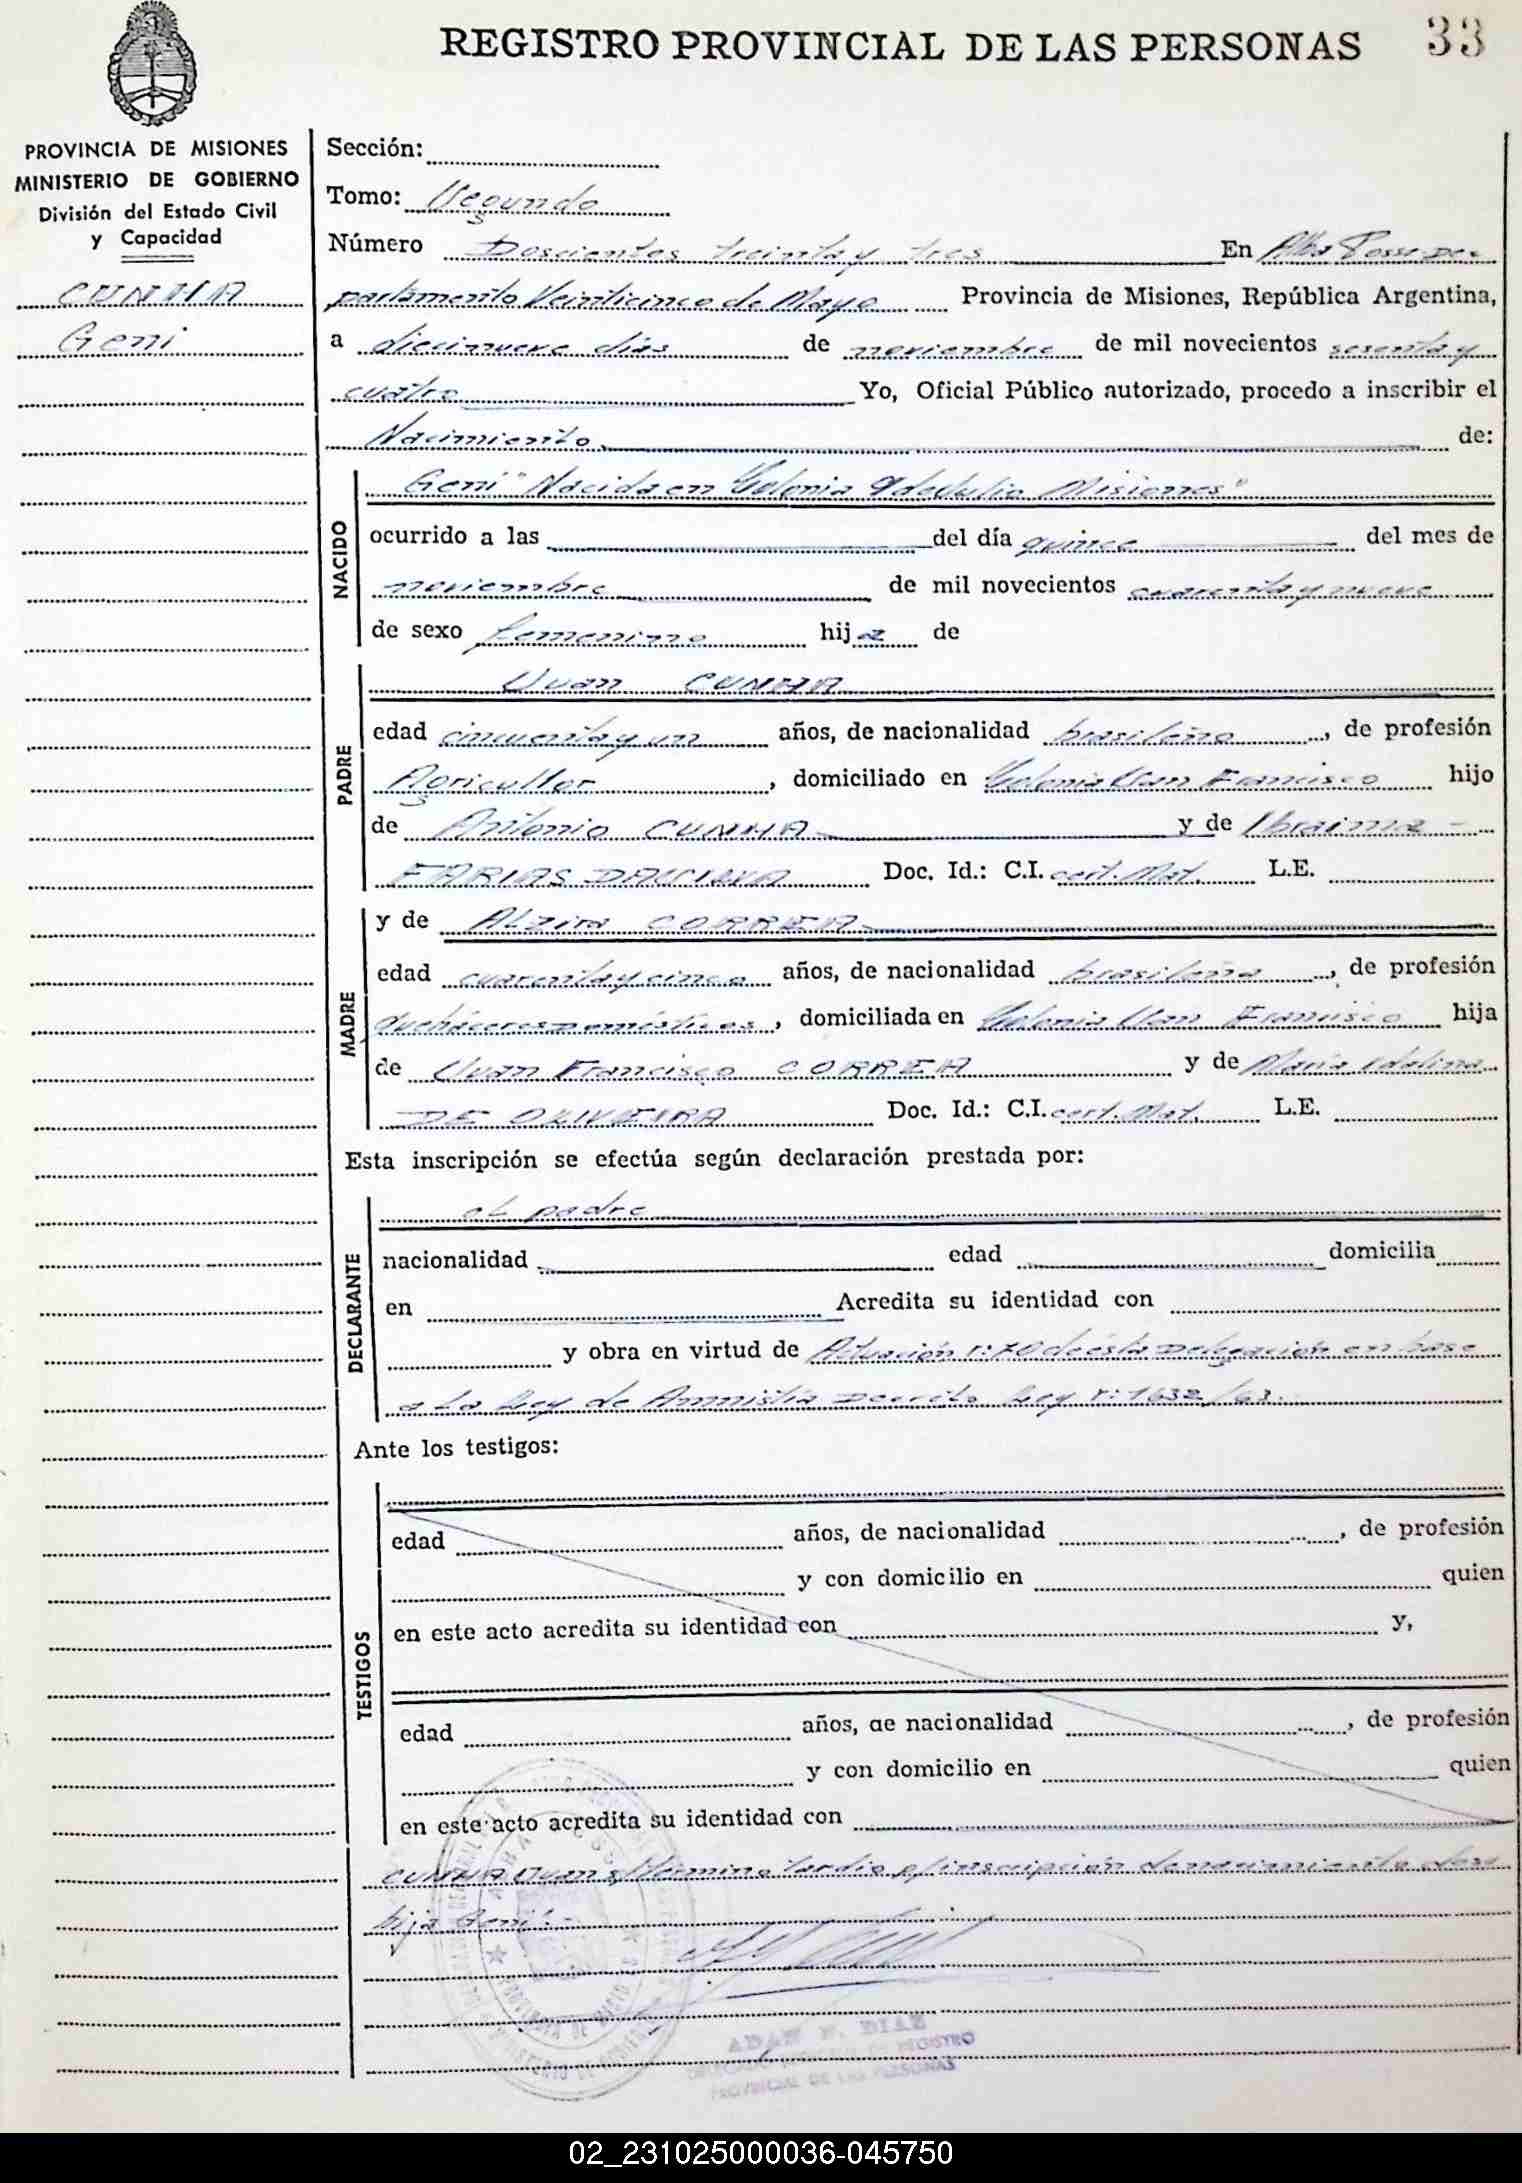 REGISTRO PROVINCIAL DE LAS PERSONAS 33
PROVINCIA DE MISIONES
MINISTERIO DE GOBIERNO
División del Estado Civil
y Capacidad
CUNHA
Geni
Sección:
Tomo: Segundo
Número Doscientos treinta y tres En Alba Posse De-
partamento Veinticinco de Mayo Provincia de Misiones, República Argentina,
a diecinueve días de noviembre de mil novecientos sesenta y
cuatro Yo, Oficial Público autorizado, procedo a inscribir el
Nacimiento de:
NACIDO
Geni "Nacida en Colonia 9 de Julio Misiones"
ocurrido a las del día quince del mes de
noviembre de mil novecientos cuarenta y nueve
de sexo femenino hija de
PADRE
Juan CUNHA
edad cincuenta y un años, de nacionalidad brasileño, de profesión
Agricultor, domiciliado en Colonia San Francisco hijo
de Antonio CUNHA y de
FARIAS Doc. Id.: C.I. cert. Nat. L.E.
MADRE
y de Alzira CORREA
edad cuarenta y cinco años, de nacionalidad brasileña, de profesión
quehaceres domésticos, domiciliada en Colonia San Francisco hija
de Juan Francisco CORREA y de María
DE OLIVEIRA Doc. Id.: C.I. cert. Nat. L.E.
Esta inscripción se efectúa según declaración prestada por:
DECLARANTE
el padre
nacionalidad edad domicilia
en Acredita su identidad con
y obra en virtud de Actuación n: 70 de ésta Delegación en base
a la Ley de Amnistía Decreto Ley n: 1632/63.
Ante los testigos:
TESTIGOS
edad años, de nacionalidad , de profesión
y con domicilio en quien
en este acto acredita su identidad con y,
edad años, de nacionalidad , de profesión
y con domicilio en quien
en este acto acredita su identidad con
CUNHA Juan s/término tardío p/inscripción de nacimiento de su
hija Geni".-
DIAZ
REGISTRO
PROVINCIAL DE LAS PERSONAS
02_231025000036-045750